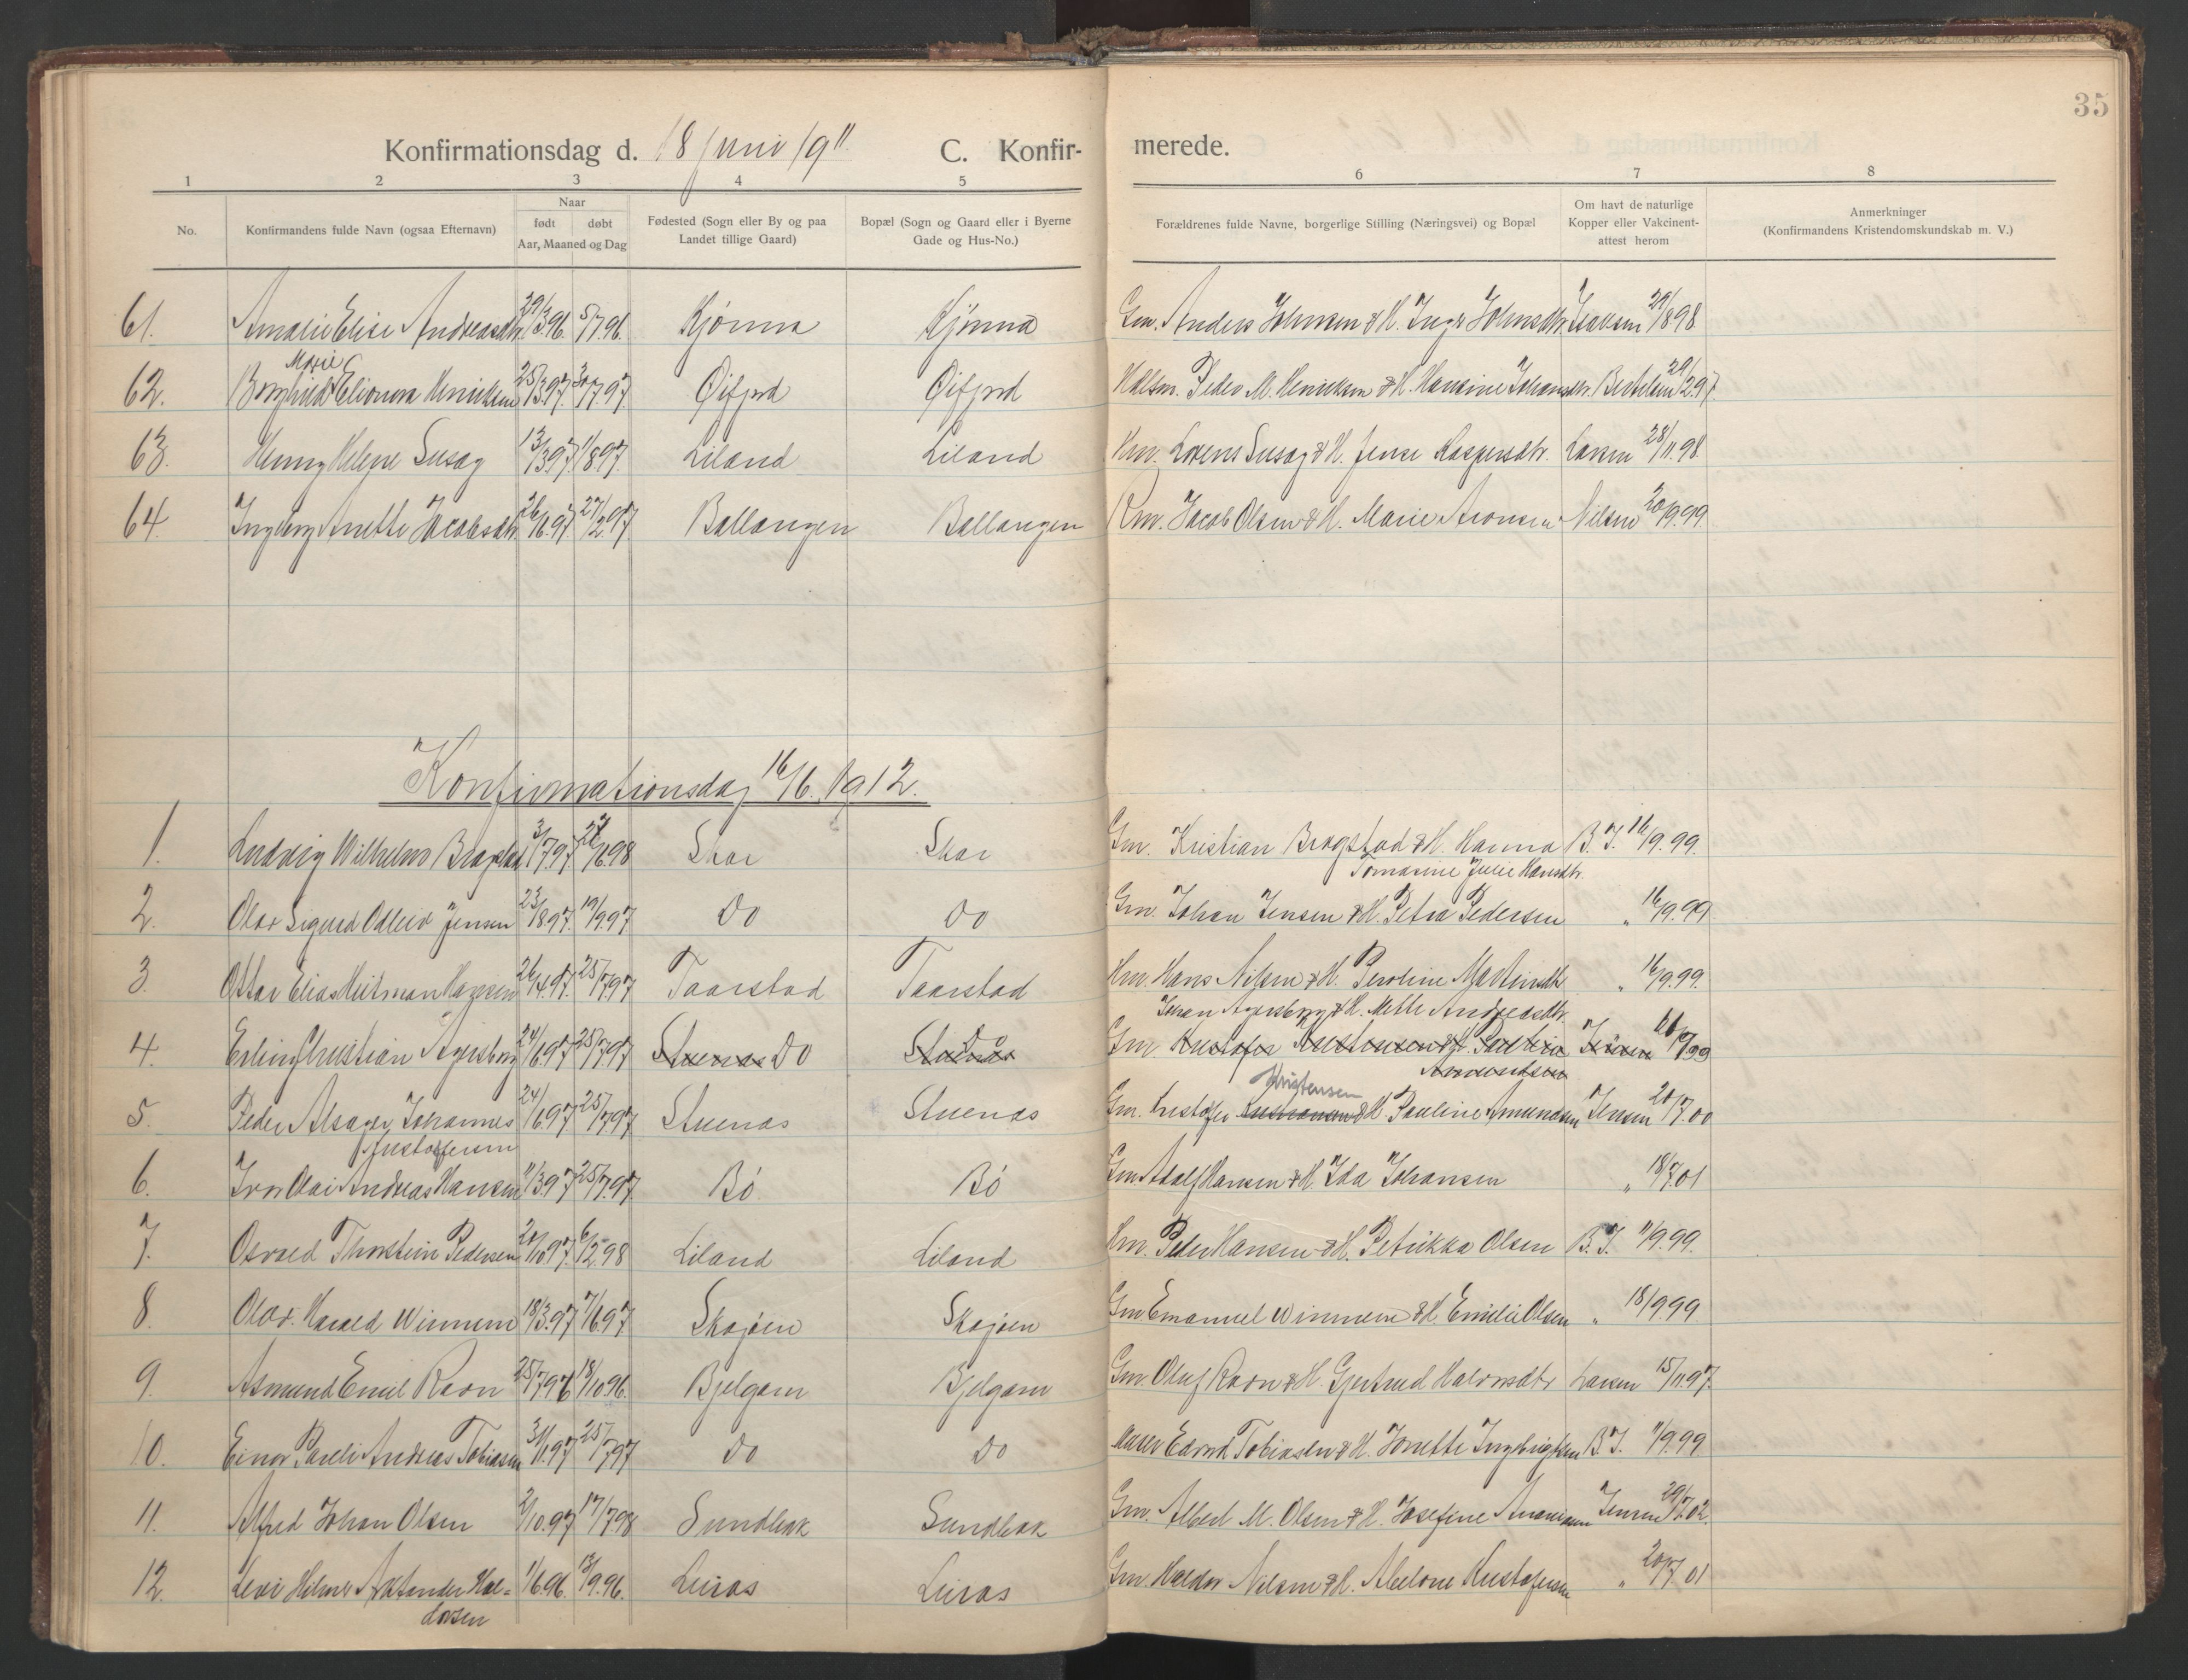 35
Konfirmationsdag d. 18 Juni 1911 C. Konfir- merede.
1 2 3 4 5 6 7 8
No. Konfirmandens fulde Navn (ogsaa Efternavn) Naar født døbt Aar, Maaned og Dag Fødested (Sogn eller By og paa Landet tillige Gaard) Bopæl (Sogn og Gaard eller i Byerne Gade og Hus-No.) Forældrenes fulde Navne, borgerlige Stilling (Næringsvei) og Bopæl Om havt de naturlige Kopper eller Vakcinent- attest herom Anmerkninger (Konfirmandens Kristendomskundskab m. V.)
61. Amalie Elise Andreasdtr. 29/3.96. 5/7.96. Kjønna Kjønna Gm. Anders Johnsen & H. Inger Johnsdtr. Isaksen 29/8 98
Marie
62. Borghild Elionora Henriksen 25/3.97. 30/7.97. Øifjord Øifjord Peder M. Henriksen & H. Hansine Johansdtr. Bertelsen 29/2.97.
63. Henny Helene Susag 13/3 97 1/8 97. Liland Liland Hm. Lorens Susag & H. Jense Kaspersdtr. Larsen 28/11.98.
64. Ingeborg Anette Jacobsdtr. 26/6.97. 27/2.97. Ballangen Ballangen Jacob Olsen & H. Marie Aronsen Nilsen 20/9.99.
Konfirmationsdag 16/6. 1912.
1. Ludvig Wilhelm Bragstad 3/7.97. 6.98 Skar Skar Gm. Kristian Bragstad & H. Hanna B. J. 16/9.99.
Tomasine Julie Hansdtr.
2. Olav Sigurd Odleiv Jensen 23/8 97. 19/9.97 Do Do Gm. Johan Jensen & H. Petra Pedersen " 16/9.99
3. Ottar Elias Heitman Hansen 26/4.97. 25/7.97 Taarstad Taarstad Hm. Hans Nilsen & H. Peroline Martinsdtr. " 16/9.99.
Johan Agersborg & H. Mette Andreasdtr.
4. Erling Christian Agersborg 24/6 97 25/7.97 Stuenas Do Stuenas Do Gm Kristofer Kristensen & H. Pauline Jensen 9/99
Amundsen
Kristensen
5. Peder Alsager Johannes 24/6 97 25/7 97 Stuenas Stuenas Gm. Kristofer Kristiansen & H. Pauline Amundsen Jensen 20/7.00
Kristoffersen
6. Ivar Olai Andreas Hansen 11/3.97 25/7.97 Bö Bö Gm. Adolf Hansen & H. Ida Johansen " 18/7.01
7. Osvald Thorstein Pedersen 20/10.97. 6/2.98 Liland Liland Hm. Peder Hansen & H. Petrikka Olsen B. J. 11/9.99.
8. Olav Harald Winnem 18/3.97 7/6.97 Skajøen Skajøen Gm Emanuel Winnem & H Emilie Olsen " 18/9.99.
9. Asmund Emil Ravn 25/7.96 18/10.96. Bjelgam Bjelgam Gm. Oluf Ravn & H. Gjertrud Halvorsdtr Larsen 15/11.97.
10. Einar Pareli Andreas Tobiasen 31/1.97 25/7 97 Do Do Edvard Tobiasen & H. Jonette Ingebrigtsen B. J. 11/9.99
11. Alfred Johan Olsen 2/10.97 17/7.98 Sundbak Sundbak Gm. Albert M. Olsen & H. Josefine Ananiasen Jensen 29/7.02.
12. Levi Hilmer Aksander Hal= 1/6.96. 13/9.96. Liiras Liiras Gm. Haldor Nilsen & H. Abelone Kristofersen " 20/7 01
dorsen